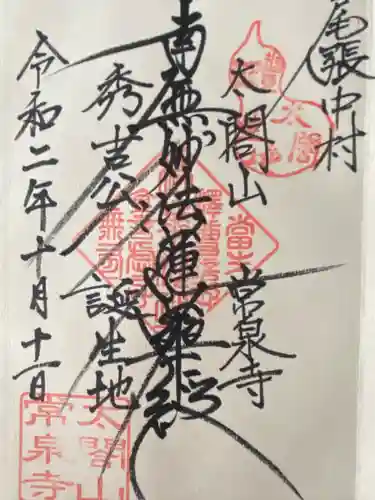 尾張中村
太閤山 常泉寺
南無妙法蓮華経
秀吉公 誕生地
令和二年十月十一日
太閤
太閤山
常泉寺